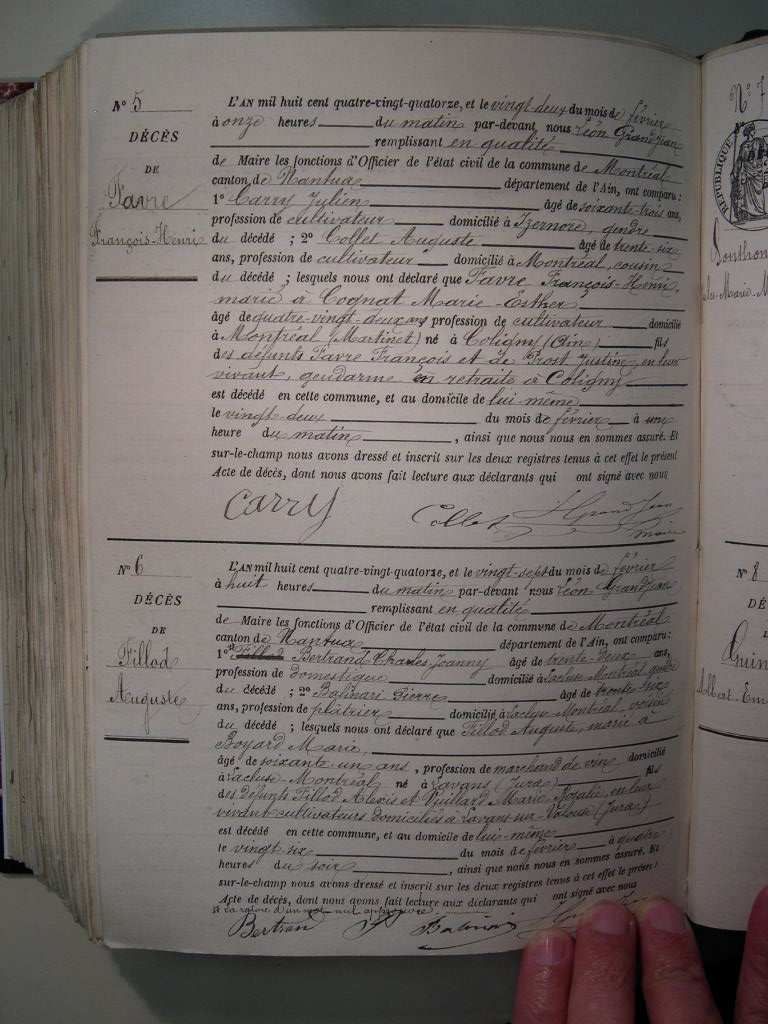 N° 5
DÉCÈS
DE
Favre
François-Henri
L'AN mil huit cent quatre-vingt-quatorze, et le vingt-deux du mois de février
à onze heures du matin par-devant nous Léon Grandjean
remplissant en qualité
de Maire les fonctions d'Officier de l'état civil de la commune de Montréal
canton de Nantua département de l'Ain, ont comparu :
1° Carry Julien âgé de soixante-trois ans,
profession de cultivateur domicilié à Izernore, gendre
du décédé ; 2° Collet Auguste âgé de trente-six
ans, profession de cultivateur domicilié à Montréal, cousin
du décédé ; lesquels nous ont déclaré que Favre François-Henri
marié à Cognat Marie-Esther
âgé de quatre-vingt-deux ans profession de cultivateur domicilié
à Montréal (Martinet) né à Coligny (Ain) fils
des défunts Favre François et de Prost Justine, en leur
vivant, gendarme en retraite à Coligny
est décédé en cette commune, et au domicile de lui-même
le vingt deux du mois de février à une
heure du matin, ainsi que nous nous en sommes assuré. Et
sur-le-champ nous avons dressé et inscrit sur les deux registres tenus à cet effet le présent
Acte de décès, dont nous avons fait lecture aux déclarants qui ont signé avec nous
Carry Collet L Grandjean
maire
N° 6
DÉCÈS
DE
Fillod
Auguste
L'AN mil huit cent quatre-vingt-quatorze, et le vingt-sept du mois de février
à huit heures du matin par-devant nous Léon Grandjean
remplissant en qualité
de Maire les fonctions d'Officier de l'état civil de la commune de Montréal
canton de Nantua département de l'Ain, ont comparu :
1° Fillod Bertrand Charles Joanny âgé de trente-deux ans,
profession de domestique domicilié à Lacluse-Montréal
du décédé ; 2° Balinari Pierre âgé de trente-six
ans, profession de plâtrier domicilié à Lacluse Montréal voisin
du décédé ; lesquels nous ont déclaré que Fillod Auguste, marié à
Boyard Marie,
âgé de soixante un ans, profession de marchand de vin domicilié
à Lacluse-Montréal né à Lavans (Jura) fils
des défunts Fillod Alexis et Vuillard Marie Rosalie en leur
vivant cultivateurs domiciliés à Lavans-sur-Valouse (Jura)
est décédé en cette commune, et au domicile de lui-même
le vingt six du mois de février à quatre
heures du soir, ainsi que nous nous en sommes assuré. Et
sur-le-champ nous avons dressé et inscrit sur les deux registres tenus à cet effet le présent
Acte de décès, dont nous avons fait lecture aux déclarants qui ont signé avec nous
la rature d'un mot nul approuvée.
Bertran Balinari
N° 7
RÉPUBLIQUE
N° 8